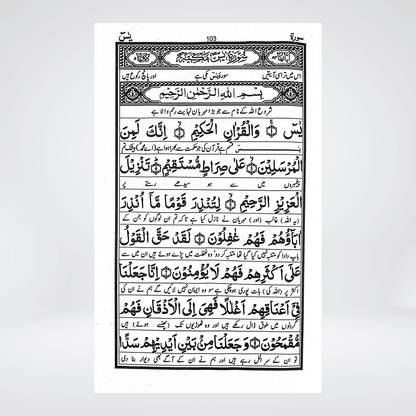 سورة 103 يٰسٓ
سُوْرَةُ يٰسٓ مَكِّيَّةٌ
اس میں تراسی آیتیں سورۃ یس مکی ہے اور پانچ رکوع ہیں
بِسْمِ اللّٰهِ الرَّحْمٰنِ الرَّحِيْمِ
شروع اللہ کے نام سے جو بڑا مہربان نہایت رحم والا ہے
يٰسٓ ۚ وَالْقُرْاٰنِ الْحَكِيْمِ ۙ اِنَّكَ لَمِنَ
قسم ہے قرآن کی جو حکمت سے بھرا ہوا ہے
الْمُرْسَلِيْنَ ۙ عَلٰى صِرَاطٍ مُّسْتَقِيْمٍ ؕ تَنْزِيْلَ
پیغمبروں میں سے ہو سیدھے رستے پر
الْعَزِيْزِ الرَّحِيْمِ ۙ لِتُنْذِرَ قَوْمًا مَّاۤ اُنْذِرَ
(یہ اللہ) غالب (اور) مہربان نے نازل کیا ہے تاکہ تم ان لوگوں کو جن کے
اٰبَآؤُهُمْ فَهُمْ غٰفِلُوْنَ لَقَدْ حَقَّ الْقَوْلُ
باپ دادا کو متنبہ نہیں کیا گیا تھا متنبہ کر دو وہ غفلت میں پڑے ہوئے ہیں ان میں سے
عَلٰۤى اَكْثَرِهِمْ فَهُمْ لَا يُؤْمِنُوْنَ اِنَّا جَعَلْنَا
اکثر پر (اللہ کی) بات پوری ہو چکی ہے سو وہ ایمان نہیں لائیں گے ہم نے ان کی
فِيْۤ اَعْنَاقِهِمْ اَغْلٰلًا فَهِيَ اِلَى الْاَذْقَانِ فَهُمْ
گردنوں میں طوق ڈال رکھے ہیں اور وہ ٹھوڑیوں تک (پھنسے ہوئے) ہیں
مُّقْمَحُوْنَ وَجَعَلْنَا مِنْۢ بَيْنِ اَيْدِيْهِمْ سَدًّا
تو ان کے سر اُلل رہے ہیں اور ہم نے ان کے آگے بھی دیوار بنا دی